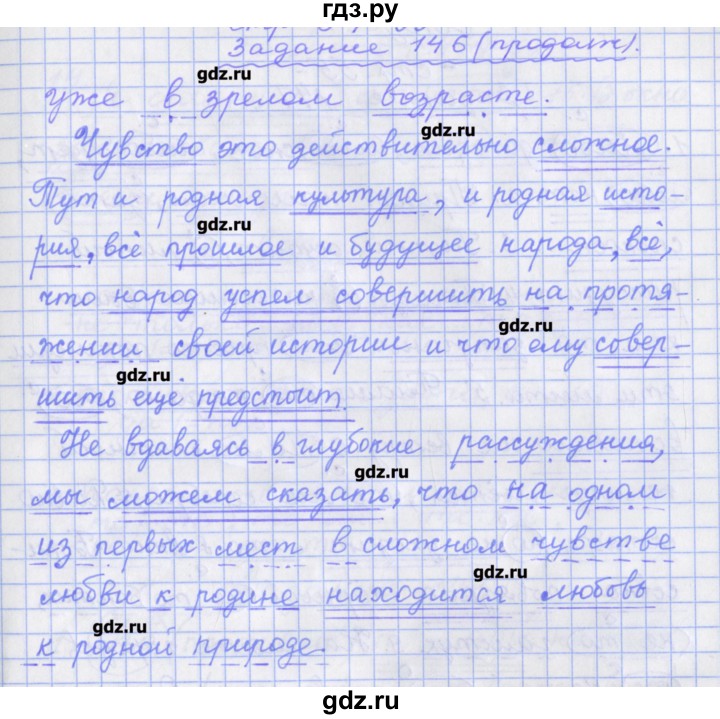 гдз.ру
Задание 146 (продолж).
gdz.ru
уже в зрелом возрасте.
gdz.ru
Чувство это действительно сложное.
Тут и родная культура, и родная исто-
gdz.ru
рия, всё прошлое и будущее народа, всё,
что народ успел совершить на протя-
gdz.ru
жении своей истории и что ему совер-
gdz.ru
шить еще предстоит.
Не вдаваясь в глубокие рассуждения,
gdz.ru
мы можем сказать, что на одном
из первых мест в сложном чувстве
gdz.ru
любви к родине находится любовь
gdz.ru
к родной природе.
gdz.ru